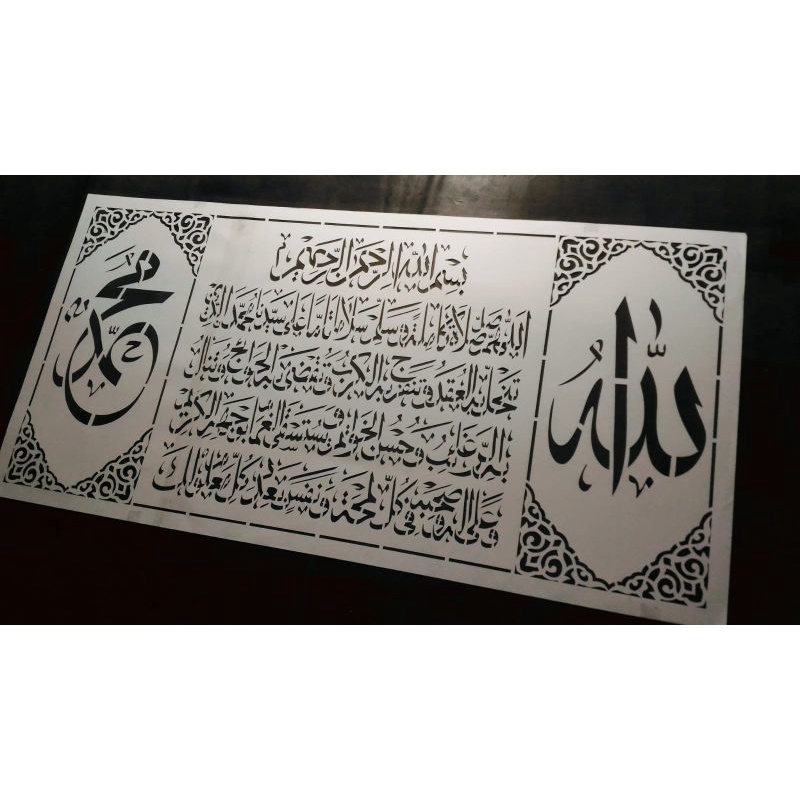 الله
بسم الله الرحمن الرحيم
اللهم صل صلاة كاملة وسلم سلاما تاما على سيدنا محمد الذي
تنحل به العقد وتنفرج به الكرب وتقضى به الحوائج وتنال
به الرغائب وحسن الخواتم ويستسقى الغمام بوجهه الكريم
وعلى اله وصحبه في كل لمحة ونفس بعدد كل معلوم لك
محمد